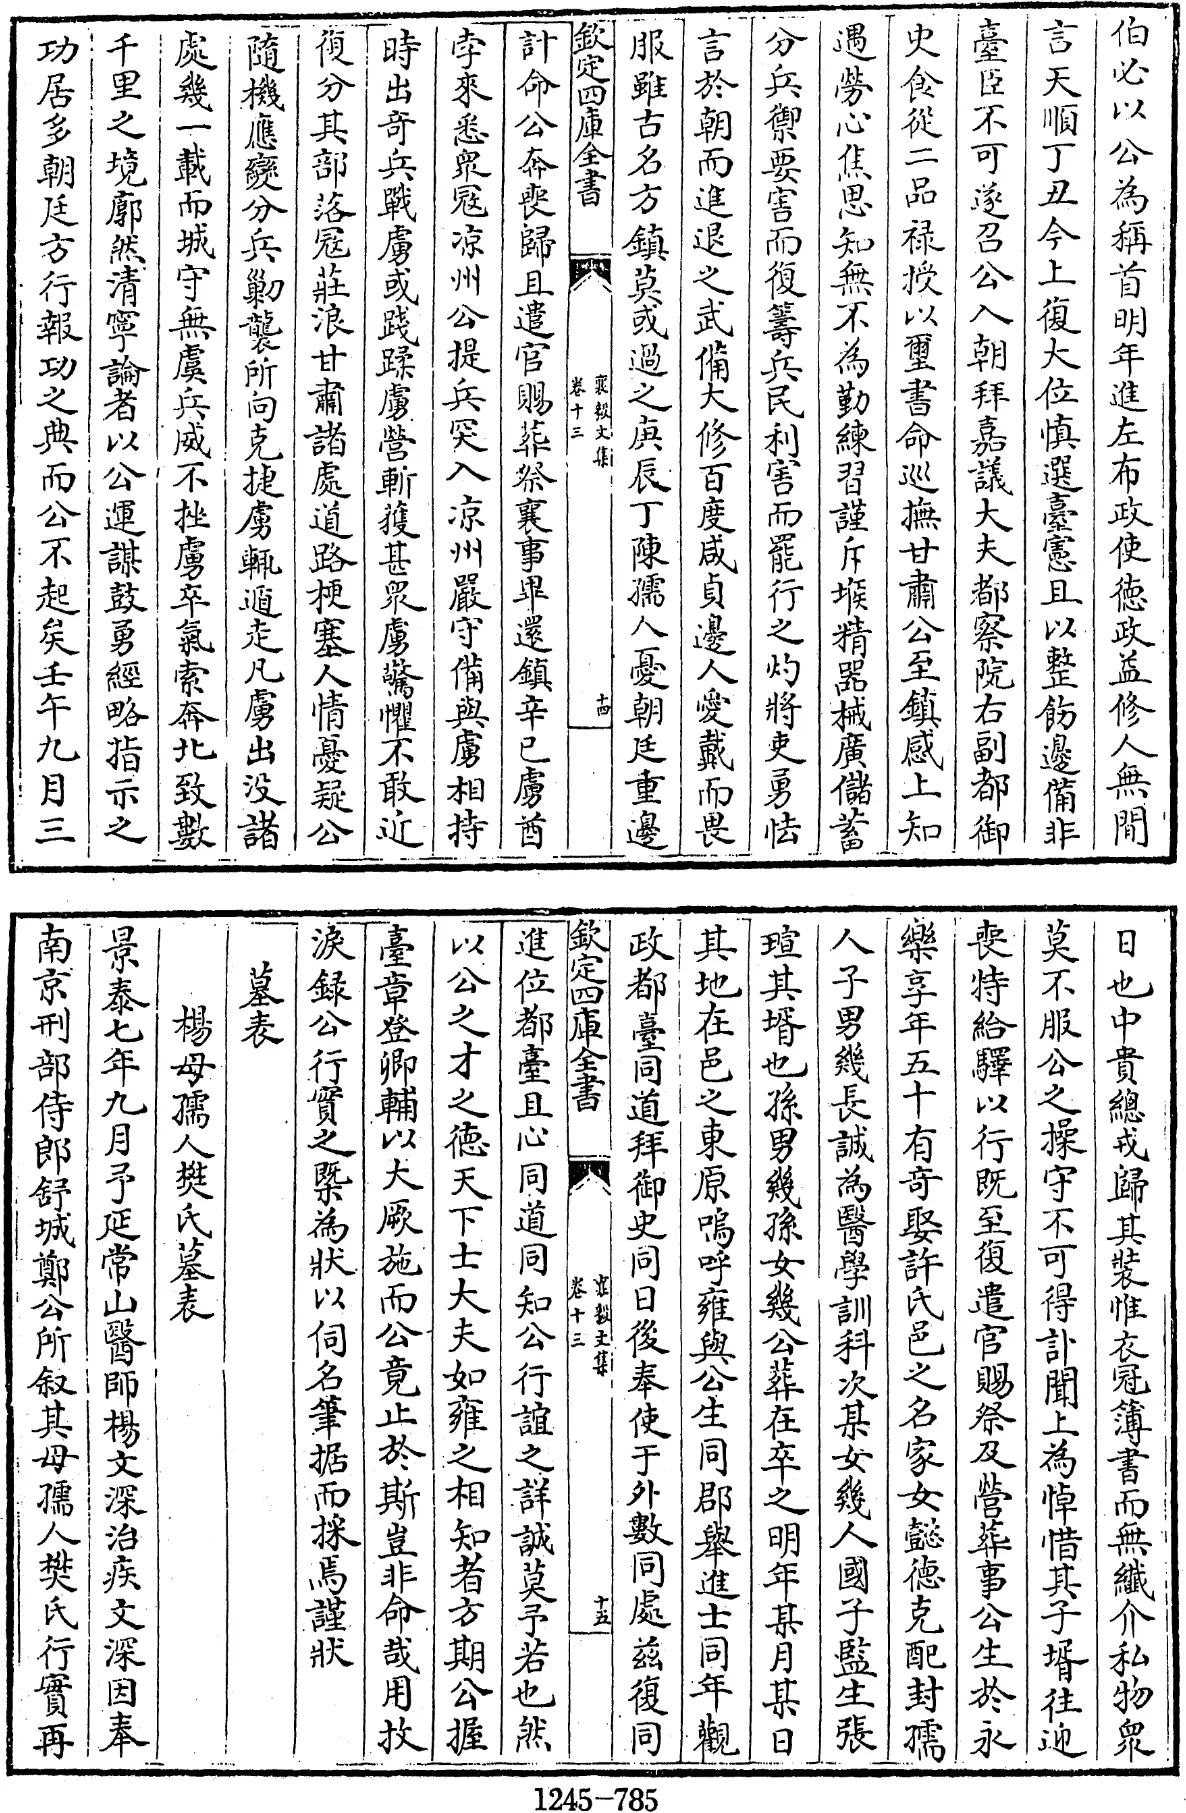 伯必以公為稱首明年進左布政使德政益修人無間
言天順丁丑今上復大位慎選臺憲且以整飭邊備非
臺臣不可遂召公入朝拜嘉議大夫都察院右副都御
史食從二品祿授以璽書命巡撫甘肅公至鎮感上知
遇勞心焦思知無不為勤練習謹斥堠精器械廣儲蓄
分兵禦要害而復籌兵民利害而罷行之灼將吏勇怯
言於朝而進退之武備大修百度咸貞邊人愛戴而畏
服雖古名方鎮莫或過之庚辰丁陳孺人憂朝廷重邊
欽定四庫全書
襄毅文集
卷十三
十四
計命公奔喪歸且遣官賜葬祭襄事畢還鎮辛巳虜酋
孛來悉眾寇凉州公提兵突入凉州嚴守備與虜相持
時出奇兵戰虜或踐蹂虜營斬獲甚眾虜驚懼不敢近
復分其部落寇莊浪甘肅諸處道路梗塞人情憂疑公
隨機應變分兵勦襲所向克捷虜輒遁走凡虜出没諸
處幾一載而城守無虞兵威不挫虜卒氣索奔北致數
千里之境廓然清寧論者以公運謀鼓勇經略指示之
功居多朝廷方行報功之典而公不起矣壬午九月三
日也中貴總戎歸其裝惟衣冠簿書而無纖介私物眾
莫不服公之操守不可得訃聞上為悼惜其子壻往迎
喪特給驛以行既至復遣官賜祭及營葬事公生於永
樂享年五十有奇娶許氏邑之名家女懿德克配封孺
人子男幾長誠為醫學訓科次某女幾人國子監生張
瑄其壻也孫男幾孫女幾公葬在卒之明年某月某日
其地在邑之東原嗚呼雍與公生同郡舉進士同年觀
政都臺同道拜御史同日後奉使于外數同處兹復同
欽定四庫全書
襄毅文集
卷十三
十五
進位都臺且心同道同知公行誼之詳誠莫予若也然
以公之才之德天下士大夫如雍之相知者方期公握
臺章登卿輔以大厥施而公竟止於斯豈非命哉用抆
淚録公行實之槩為狀以伺名筆据而採焉謹狀
墓表
楊母孺人樊氏墓表
景泰七年九月予延常山醫師楊文深治疾文深因奉
南京刑部侍郎舒城鄭公所叙其母孺人樊氏行實再
1245-785